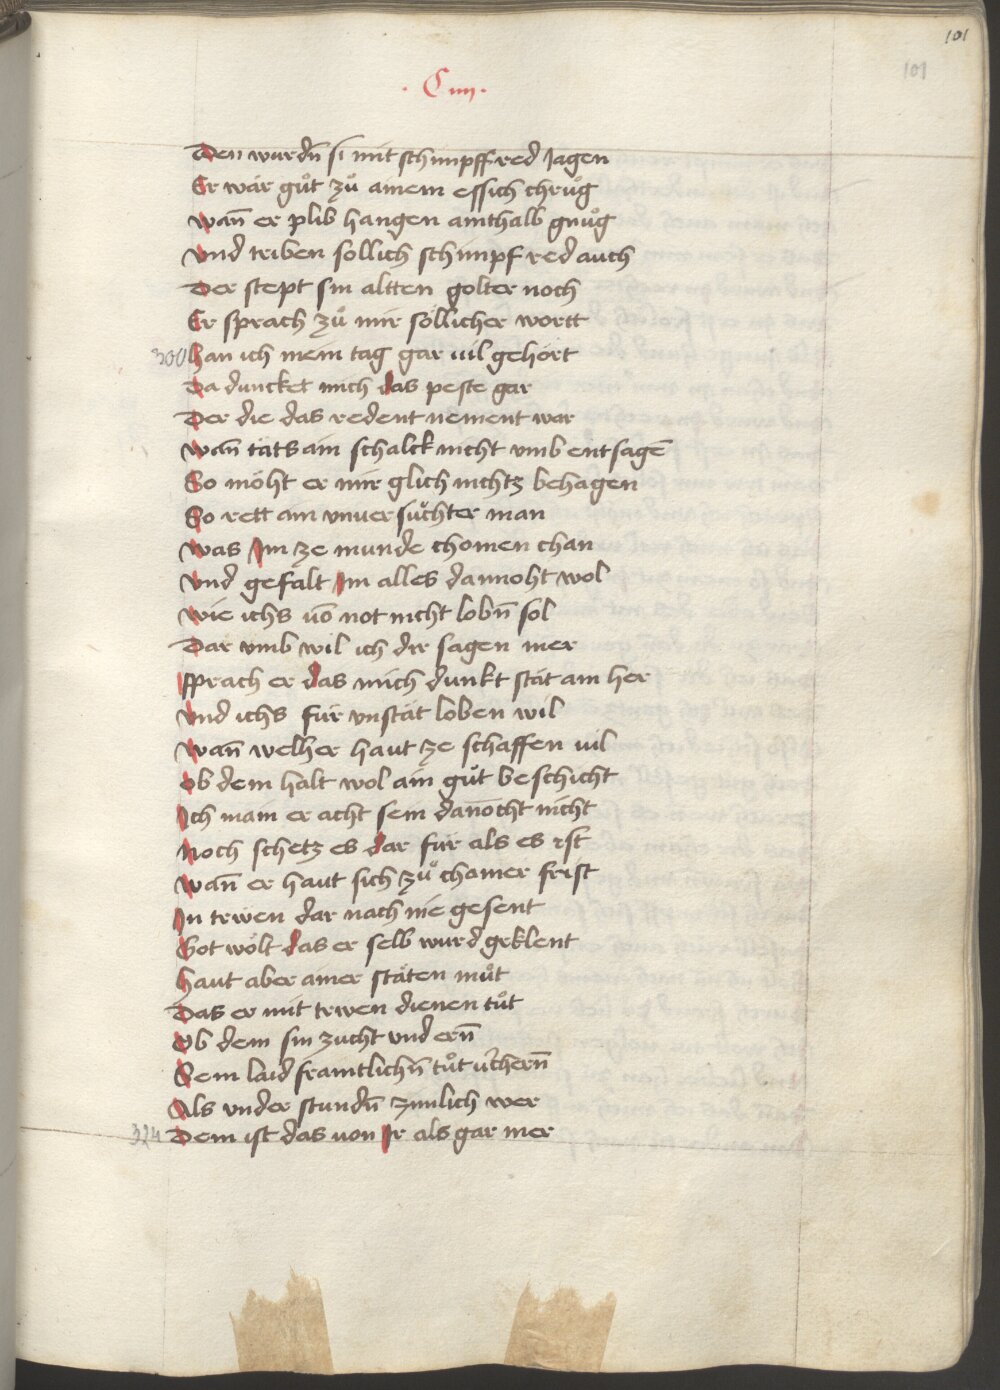 101
101
· C iiij ·
Den wurdn̄ si mit schimpffred Jagen
Er wär gůt zů ainem essich chrůg
wan̄ er plib hangen ainthalb gnůg
vnd triben sollich schimpf red auch
Der stept sin altten golter noch
Er sprach zů mir söllicher wortt
300 han ich mein tag gar uil gehört
Da duncket mich das peste gar
Der die das redent nement war
wan̄ tats ain schalck nicht vmb entsagē
So möht er mir glich nichtz behagen
So rett ain vnuersůchter man
was Im ze munde chomen chan
vnd gefalt Im alles dannoht wol
wie ichs uō not nicht lobn̄ sol
Dar vmb wil ich dir sagen mer
sprach er das mich dunkt stät am her
vnd ichs für vnstät loben wil
wan̄ welher haut ze schaffen uil
ob dem halt wol ain gůt beschicht
Ich main er acht sein danocht nicht
Noch schetz es dar für als es ist
wan̄ er haut sich zů chainer frist
In trwen dar nach nie gesent
Got wölt das er selb wurd geklent
haut aber ainer stäten můt
Das er mit trwen dienen tůt
Ob dem sin zucht vnd ern̄
Sem laid framtlichn̄ tůt u̓chern̄
Als vnder stundn̄ zimlich wer
324 Dem ist das uon Ir als gar mer